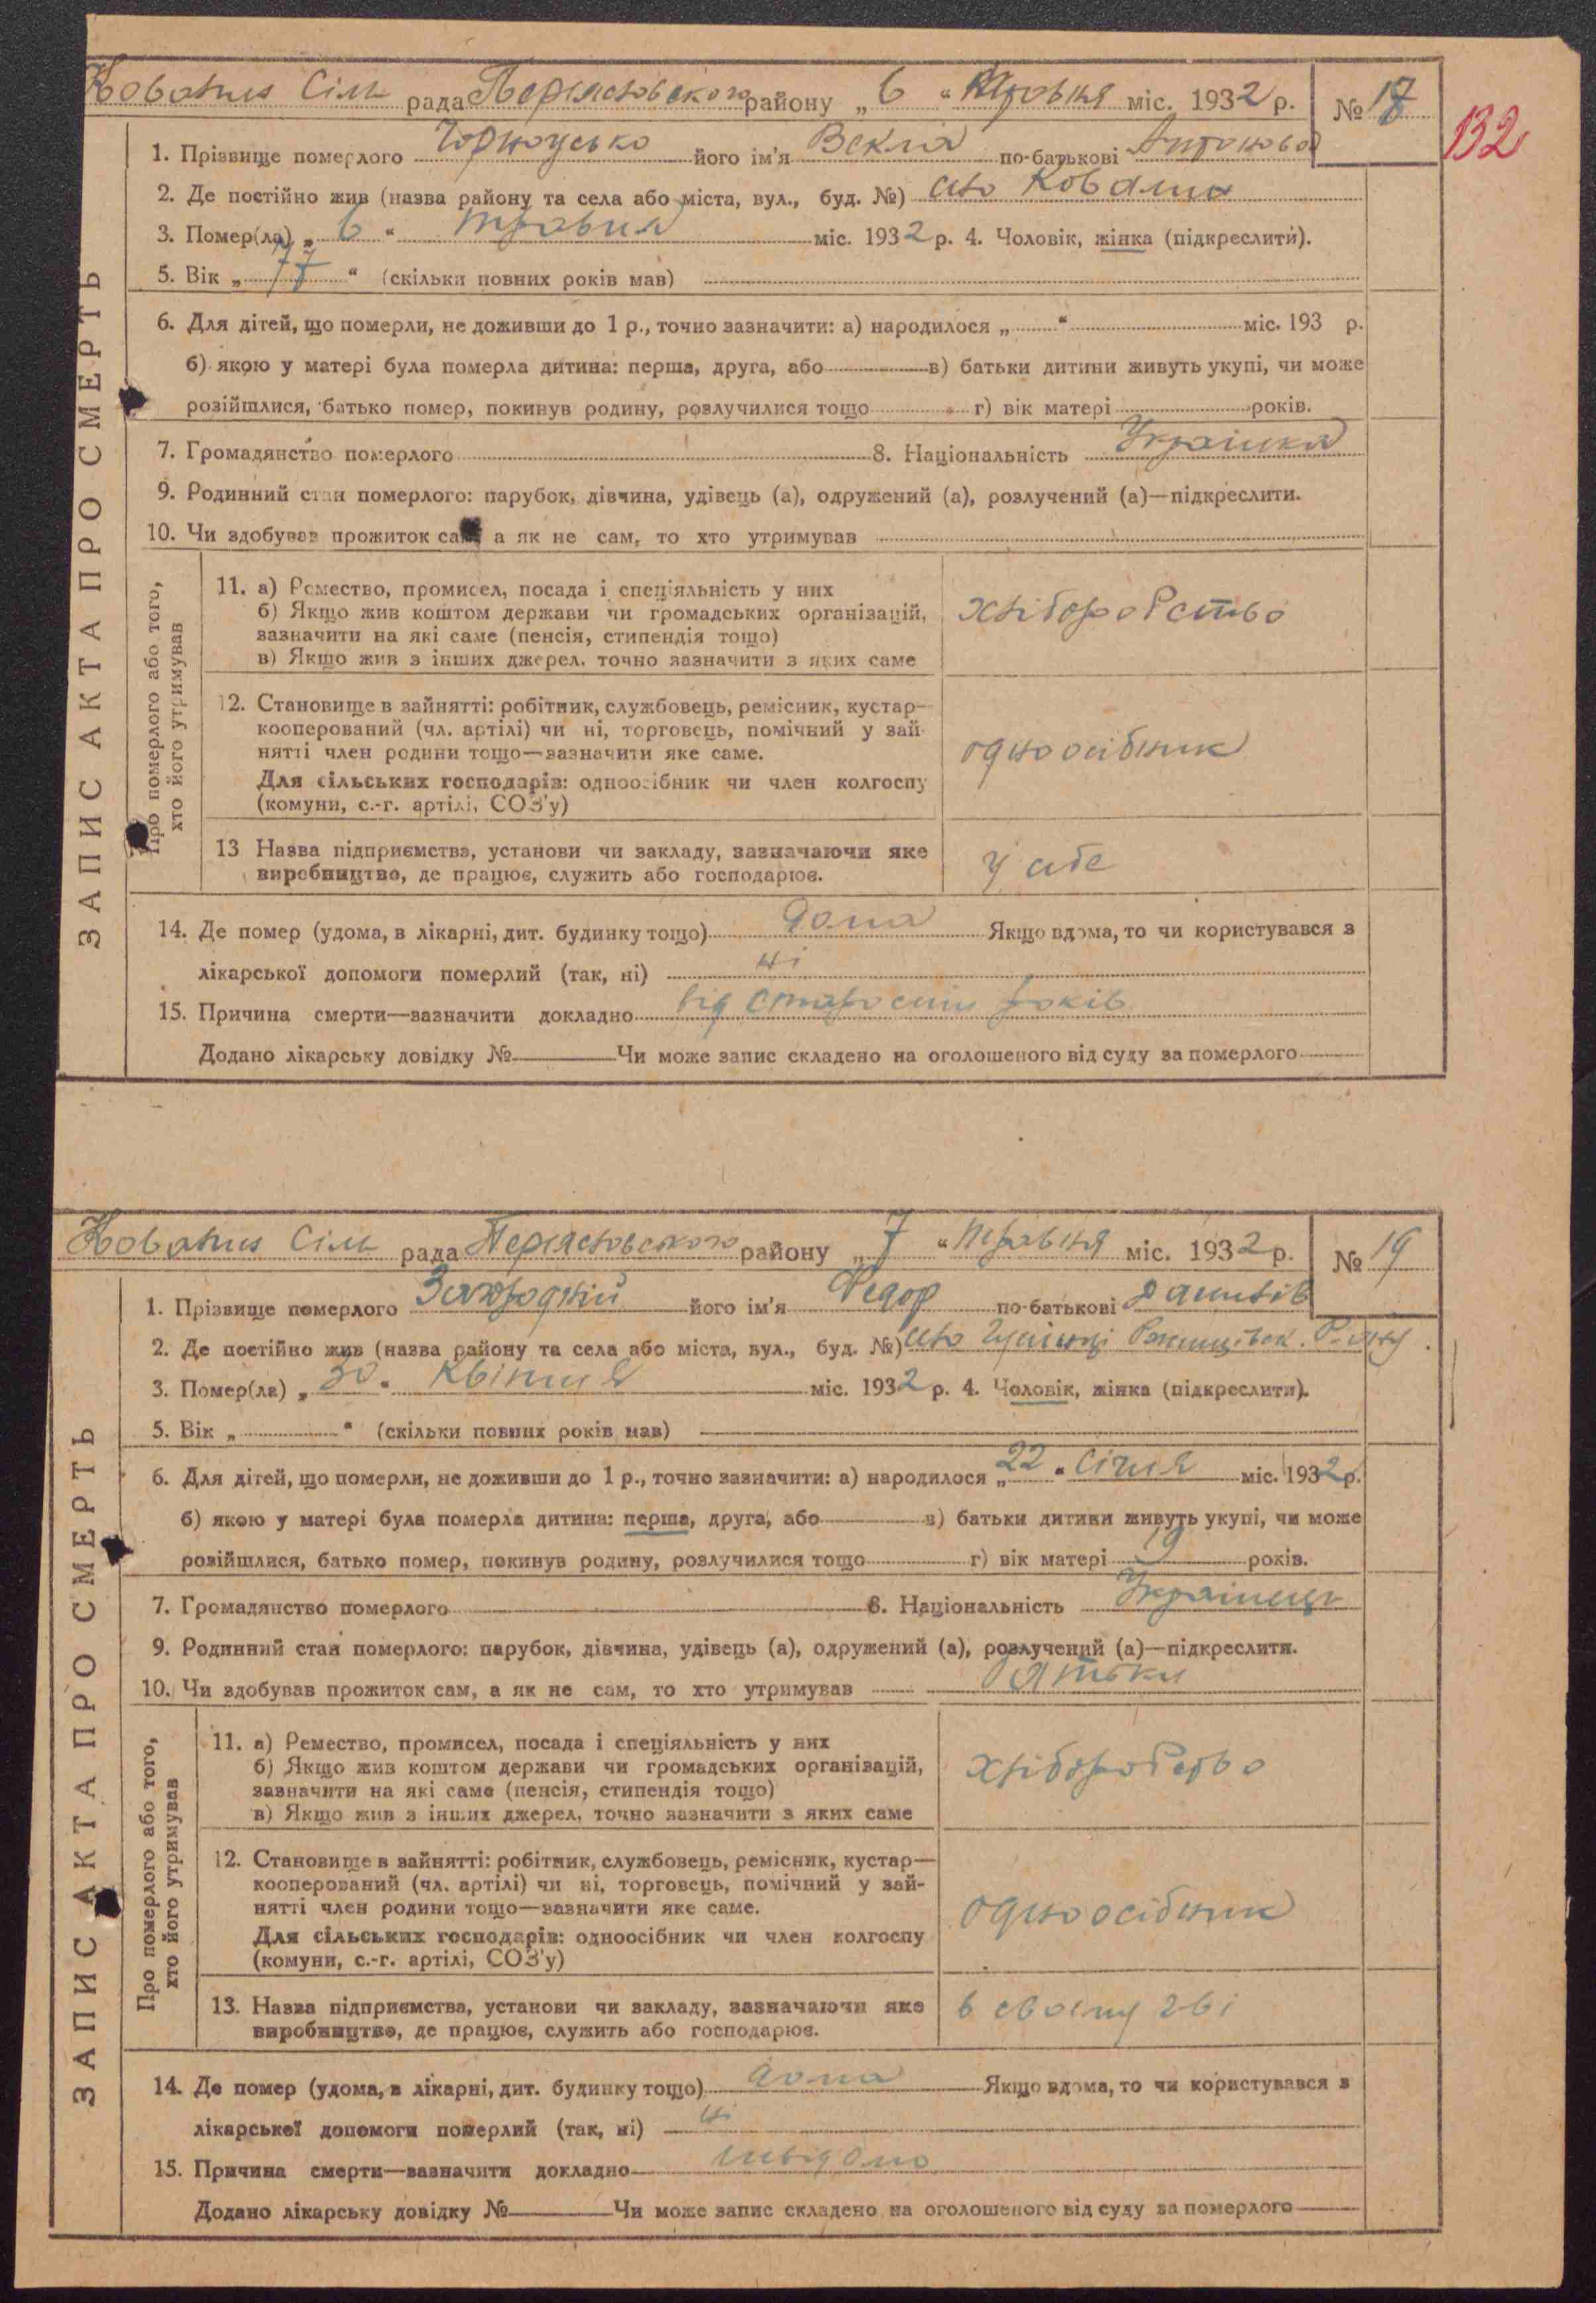 Ковалин Сіль рада Переяславського району „ 6 “ травня міс. 1932 р. № 17
132
1. Прізвище померлого Чорноусько його ім'я Векла по-батькові Антонова
2. Де постійно жив (назва району та села або міста, вул., буд. №) село Ковалин
3. Помер(ла) „ 6 “ травня міс. 1932 р. 4. Чоловік, жінка (підкреслити).
5. Вік „ 77 “ (скільки повних років мав)
6. Для дітей, що померли, не доживши до 1 р., точно зазначити: а) народилося „ “ міс. 193 р.
б) якою у матері була померла дитина: перша, друга, або в) батьки дитини живуть укупі, чи може
розійшлися, батько помер, покинув родину, розлучилися тощо г) вік матері років.
7. Громадянство померлого 8. Національність Українка
9. Родинний стан померлого: парубок, дівчина, удівець (а), одружений (а), розлучений (а)—підкреслити.
10. Чи здобував прожиток сам, а як не сам, то хто утримував
ЗАПИС АКТА ПРО СМЕРТЬ
Про померлого або того,
хто його утримував
11. а) Ремество, промисел, посада і спеціяльність у них
б) Якщо жив коштом держави чи громадських організацій,
зазначити на які саме (пенсія, стипендія тощо)
в) Якщо жив з інших джерел, точно зазначити з яких саме
хліборобство
12. Становище в зайнятті: робітник, службовець, ремісник, кустар—
кооперований (чл. артілі) чи ні, торговець, помічний у зай-
нятті член родини тощо—зазначити яке саме.
Для сільських господарів: одноосібник чи член колгоспу
(комуни, с.-г. артілі, СОЗ'у)
одноосібник
13 Назва підприємства, установи чи закладу, зазначаючи яке
виробництво, де працює, служить або господарює.
у себе
14. Де помер (удома, в лікарні, дит. будинку тощо) дома Якщо вдома, то чи користувався з
лікарської допомоги померлий (так, ні) ні
15. Причина смерти—зазначити докладно від старости років
Додано лікарську довідку № Чи може запис складено на оголошеного від суду за померлого
Ковалин Сіль рада Переяславського району „ 7 “ травня міс. 1932 р. № 19
1. Прізвище померлого Загородній його ім'я Федор по-батькові Данилів
2. Де постійно жив (назва району та села або міста, вул., буд. №) село
3. Помер(ла) „ 30 “ Квітня міс. 1932 р. 4. Чоловік, жінка (підкреслити).
5. Вік „ “ (скільки повних років мав)
6. Для дітей, що померли, не доживши до 1 р., точно зазначити: а) народилося „ 22 “ січня міс. 1932 р.
б) якою у матері була померла дитина: перша, друга, або в) батьки дитини живуть укупі, чи може
розійшлися, батько помер, покинув родину, розлучилися тощо г) вік матері 19 років.
7. Громадянство померлого 8. Національність Українець
9. Родинний стан померлого: парубок, дівчина, удівець (а), одружений (а), розлучений (а)—підкреслити.
10. Чи здобував прожиток сам, а як не сам, то хто утримував батьки
ЗАПИС АКТА ПРО СМЕРТЬ
Про померлого або того,
хто його утримував
11. а) Ремество, промисел, посада і спеціяльність у них
б) Якщо жив коштом держави чи громадських організацій,
зазначити на які саме (пенсія, стипендія тощо)
в) Якщо жив з інших джерел, точно зазначити з яких саме
хліборобство
12. Становище в зайнятті: робітник, службовець, ремісник, кустар—
кооперований (чл. артілі) чи ні, торговець, помічний у зай-
нятті член родини тощо—зазначити яке саме.
Для сільських господарів: одноосібник чи член колгоспу
(комуни, с.-г. артілі, СОЗ'у)
одноосібник
13. Назва підприємства, установи чи закладу, зазначаючи яке
виробництво, де працює, служить або господарює.
в своєму г-ві
14. Де помер (удома, в лікарні, дит. будинку тощо) дома Якщо вдома, то чи користувався з
лікарської допомоги померлий (так, ні) ні
15. Причина смерти—зазначити докладно невідомо
Додано лікарську довідку № Чи може запис складено на оголошеного від суду за померлого